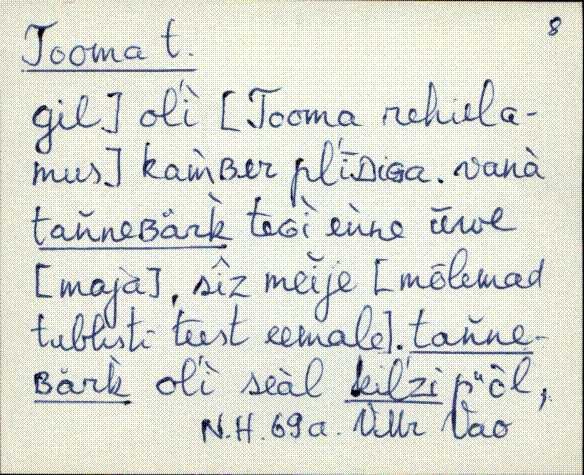 8
Tooma t.
gil] ol̀'i [Tooma rehiela-
mus] kam̀ʙer pl'īᴅiɢa. vanà
tan̆neʙårk̀ teɢì eìne ūwe
[majà], sîz meĭje [mõlemad
tublisti teest eemale]. tan̆ne-
ʙårk̀ ol̀'i seàl kil'zi pᵘôl,
N.H. 69a. VMr Vao